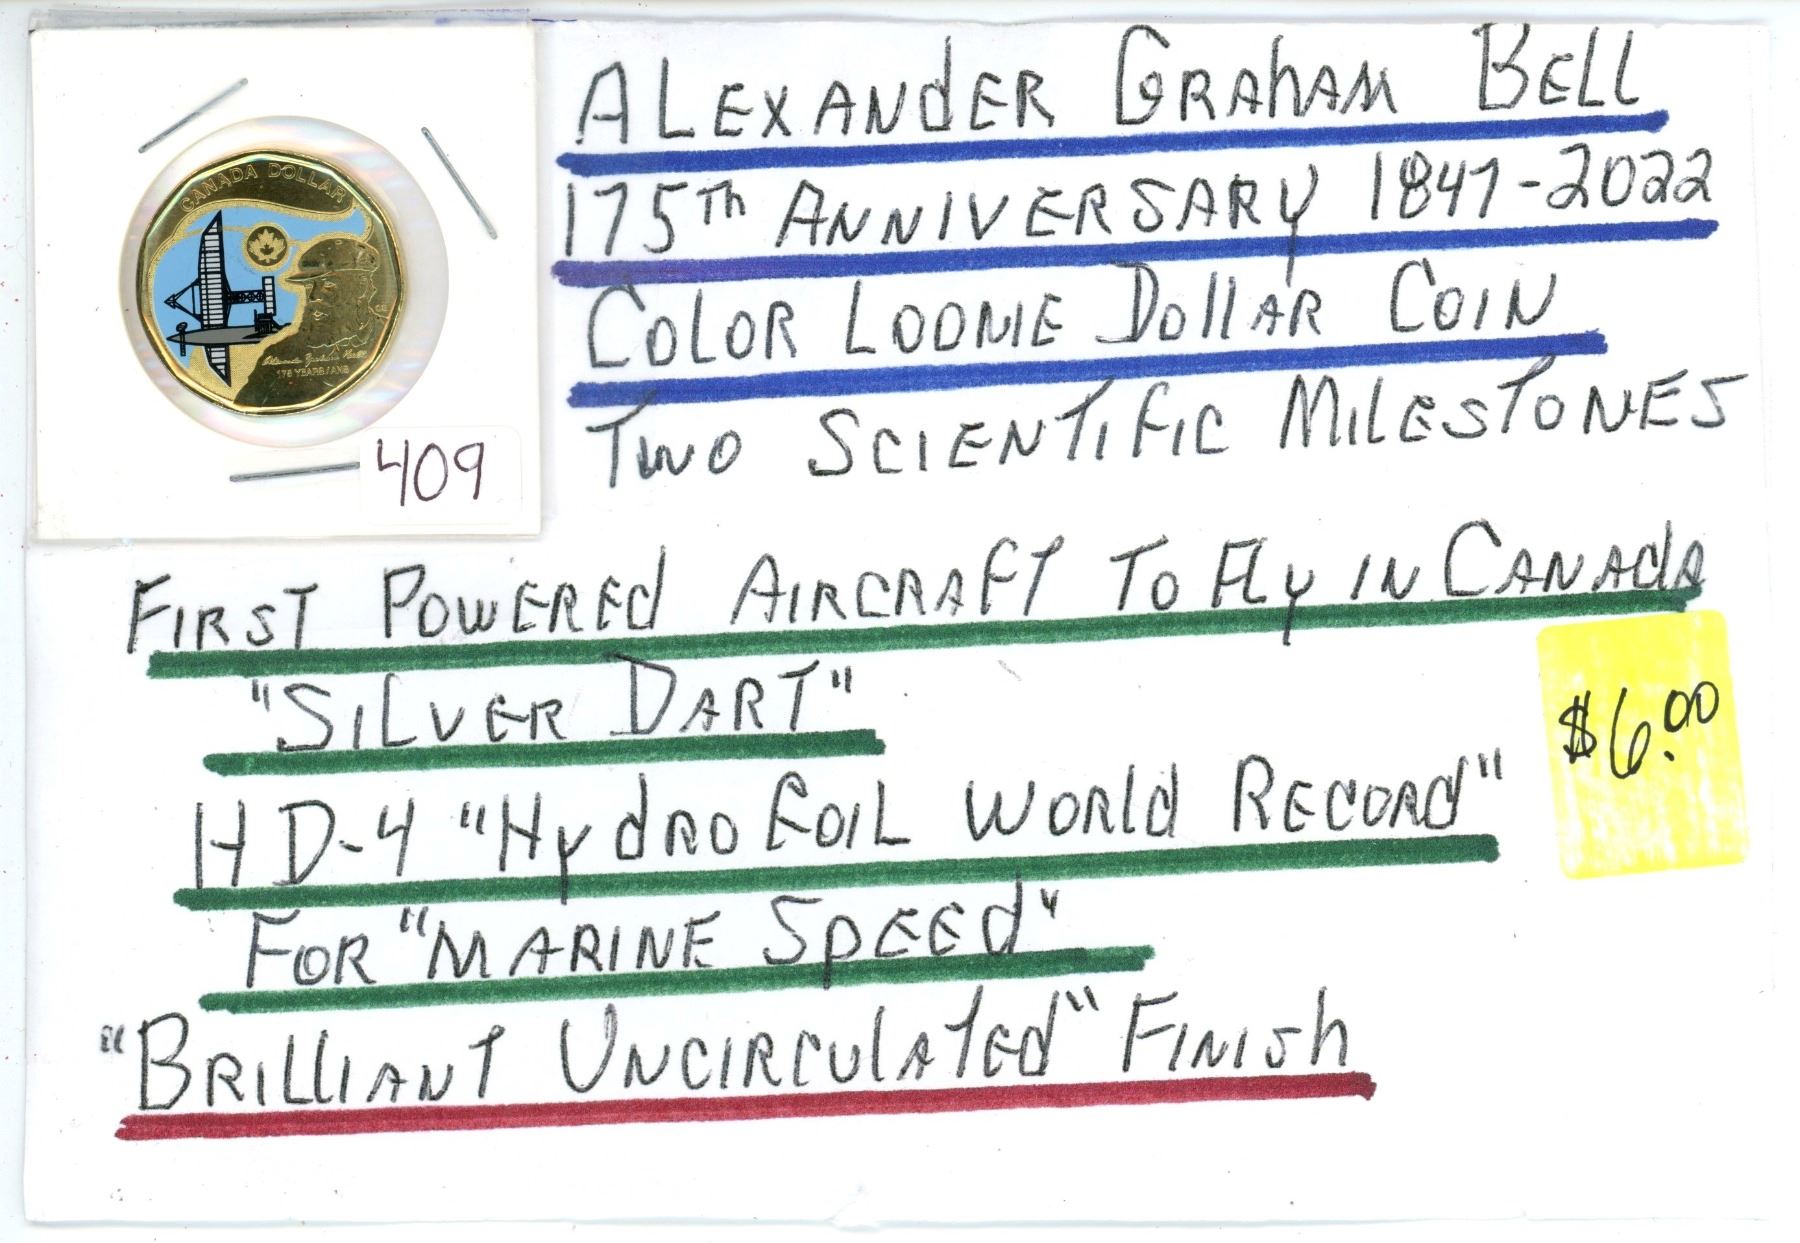 ALEXANDER GRAHAM BELL
175TH ANNIVERSARY 1847-2022
COLOR LOONIE DOLLAR COIN
TWO SCIENTIFIC MILESTONES
CANADA DOLLAR
175 YEARS/ANS
409
FIRST POWERED AIRCRAFT TO FLY IN CANADA
"SILVER DART"
$6.00
HD-4 "HYDRO FOIL WORLD RECORD"
FOR "MARINE SPEED"
"BRILLIANT UNCIRCULATED" FINISH